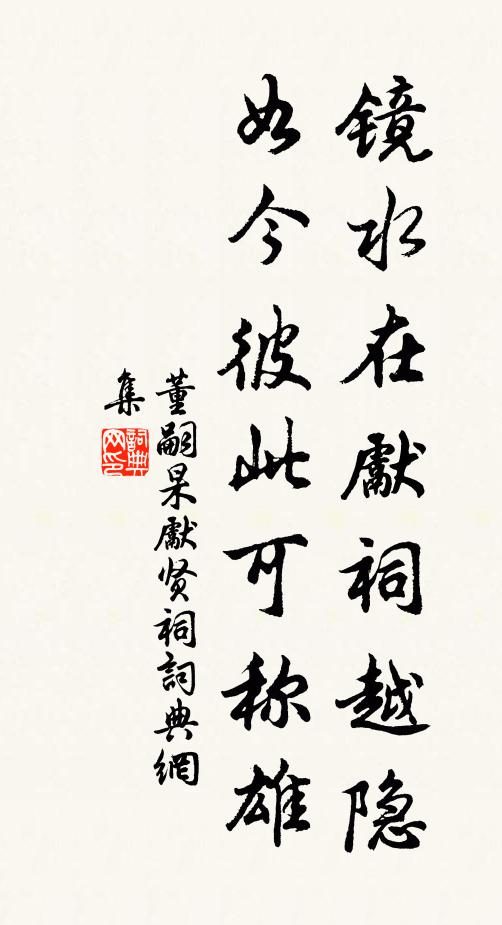 镜水在獻祠越隐
如今彼此可称雄
董嗣杲獻贤祠詞典網
集
詞典
网印